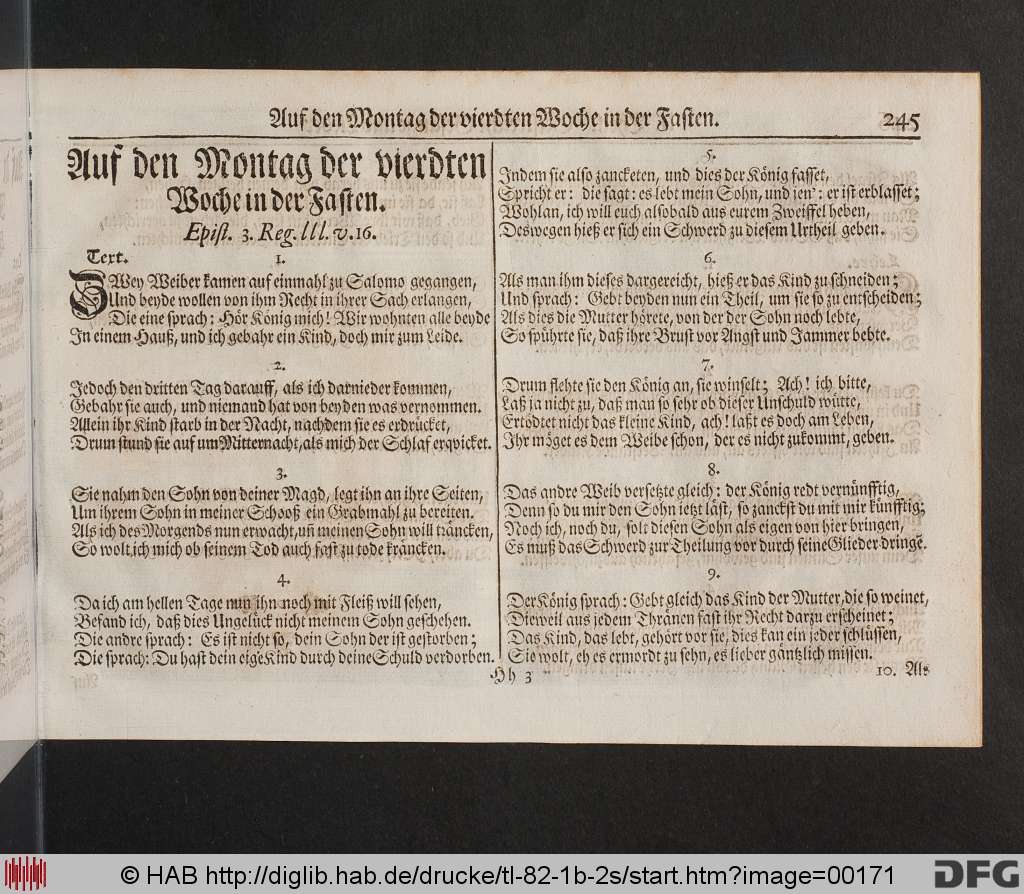 Auf den Montag der vierdten Woche in der Fasten.
245
Auf den Montag der vierdten
Woche in der Fasten.
Epist. 3. Reg. lll. v. 16.
Text.
1.
ZWey Weiber kamen auf einmahl zu Salomo gegangen,
Und beyde wollen von ihm Recht in ihrer Sach erlangen,
Die eine sprach: Hör König mich! Wir wohnten alle beyde
In einem Hauß, und ich gebahr ein Kind, doch mir zum Leide.
2.
Jedoch den dritten Tag darauff, als ich darnieder kommen,
Gebahr sie auch, und niemand hat von beyden was vernommen.
Allein ihr Kind starb in der Nacht, nachdem sie es erdrücket,
Drum stund sie auf um Mitternacht, als mich der Schlaf erqvicket.
3.
Sie nahm den Sohn von deiner Magd, legt ihn an ihre Seiten,
Um ihrem Sohn in meiner Schooß ein Grabmahl zu bereiten.
Als ich des Morgends nun erwacht, uñ meinen Sohn will träncken,
So wolt ich mich ob seinem Tod auch fast zu tode kräncken.
4.
Da ich am hellen Tage nun ihn noch mit Fleiß will sehen,
Befand ich, daß dies Ungelück nicht meinem Sohn geschehen.
Die andre sprach: Es ist nicht so, dein Sohn der ist gestorben;
Die sprach: Du hast dein eigē Kind durch deine Schuld verdorben.
5.
Indem sie also zancketen, und dies der König fasset,
Spricht er: die sagt: es lebt mein Sohn, und jen': er ist erblasset;
Wohlan, ich will euch alsobald aus eurem Zweiffel heben,
Deswegen hieß er sich ein Schwerd zu diesem Urtheil geben.
6.
Als man ihm dieses dargereicht, hieß er das Kind zu schneiden;
Und sprach: Gebt beyden nun ein Theil, um sie so zu entscheiden;
Als dies die Mutter hörete, von der der Sohn noch lebte,
So spührte sie, daß ihre Brust vor Angst und Jammer bebte.
7.
Drum flehte sie den König an, sie winselt; Ach! ich bitte,
Laß ja nicht zu, daß man so sehr ob dieser Unschuld wütte,
Ertödtet nicht das kleine Kind, ach! laßt es doch am Leben,
Ihr möget es dem Weibe schon, der es nicht zukommt, geben.
8.
Das andre Weib versetzte gleich: der König redt vernünfftig,
Denn so du mir den Sohn ietzt läst, so zanckst du mit mir künfftig;
Noch ich, noch du, solt diesen Sohn als eigen von hier bringen,
Es muß das Schwerd zur Theilung vor durch seine Glieder dringē.
9.
Der König sprach: Gebt gleich das Kind der Mutter, die so weinet,
Dieweil aus jedem Thränen fast ihr Recht darzu erscheinet;
Das Kind, das lebt, gehört vor sie, dies kan ein jeder schlüssen,
Sie wolt, eh es ermordt zu sehn, es lieber gäntzlich missen.
Hh 3
10. Als
© HAB http://diglib.hab.de/drucke/tl-82-1b-2s/start.htm?image=00171
DFG